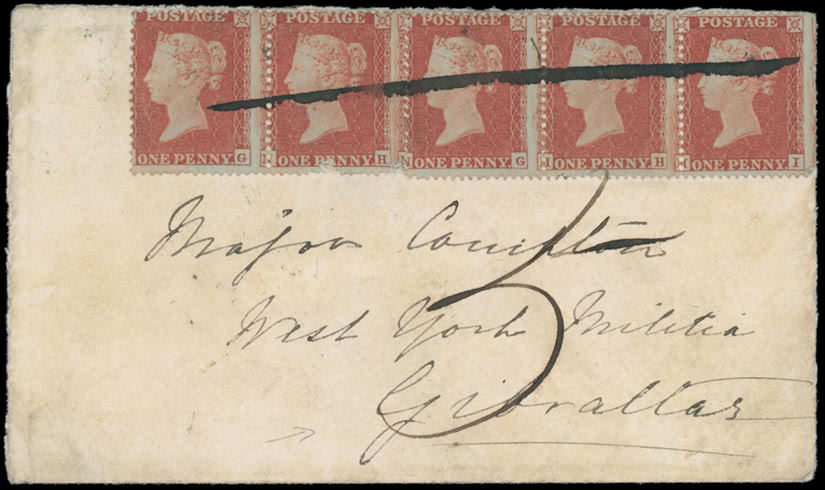 POSTAGE POSTAGE POSTAGE POSTAGE POSTAGE
ONE PENNY G ONE PENNY H N ONE PENNY G ONE PENNY H ONE PENNY I
Major Compton
West York Militia
Gibraltar